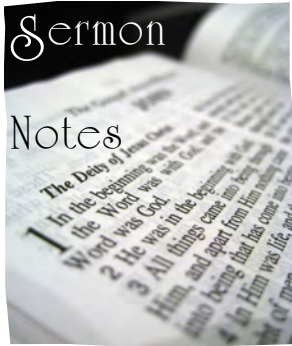 Sermon
Notes
The Gospel According
JOHN
The Deity of Jesus Christ
1 In the beginning was the Word,
the Word was with God, and the
Word was God.
2 He was in the beginning with God.
3 All things came into being through
Him, and apart from Him nothing came
into being that has come into being.
4 In Him was life, and the